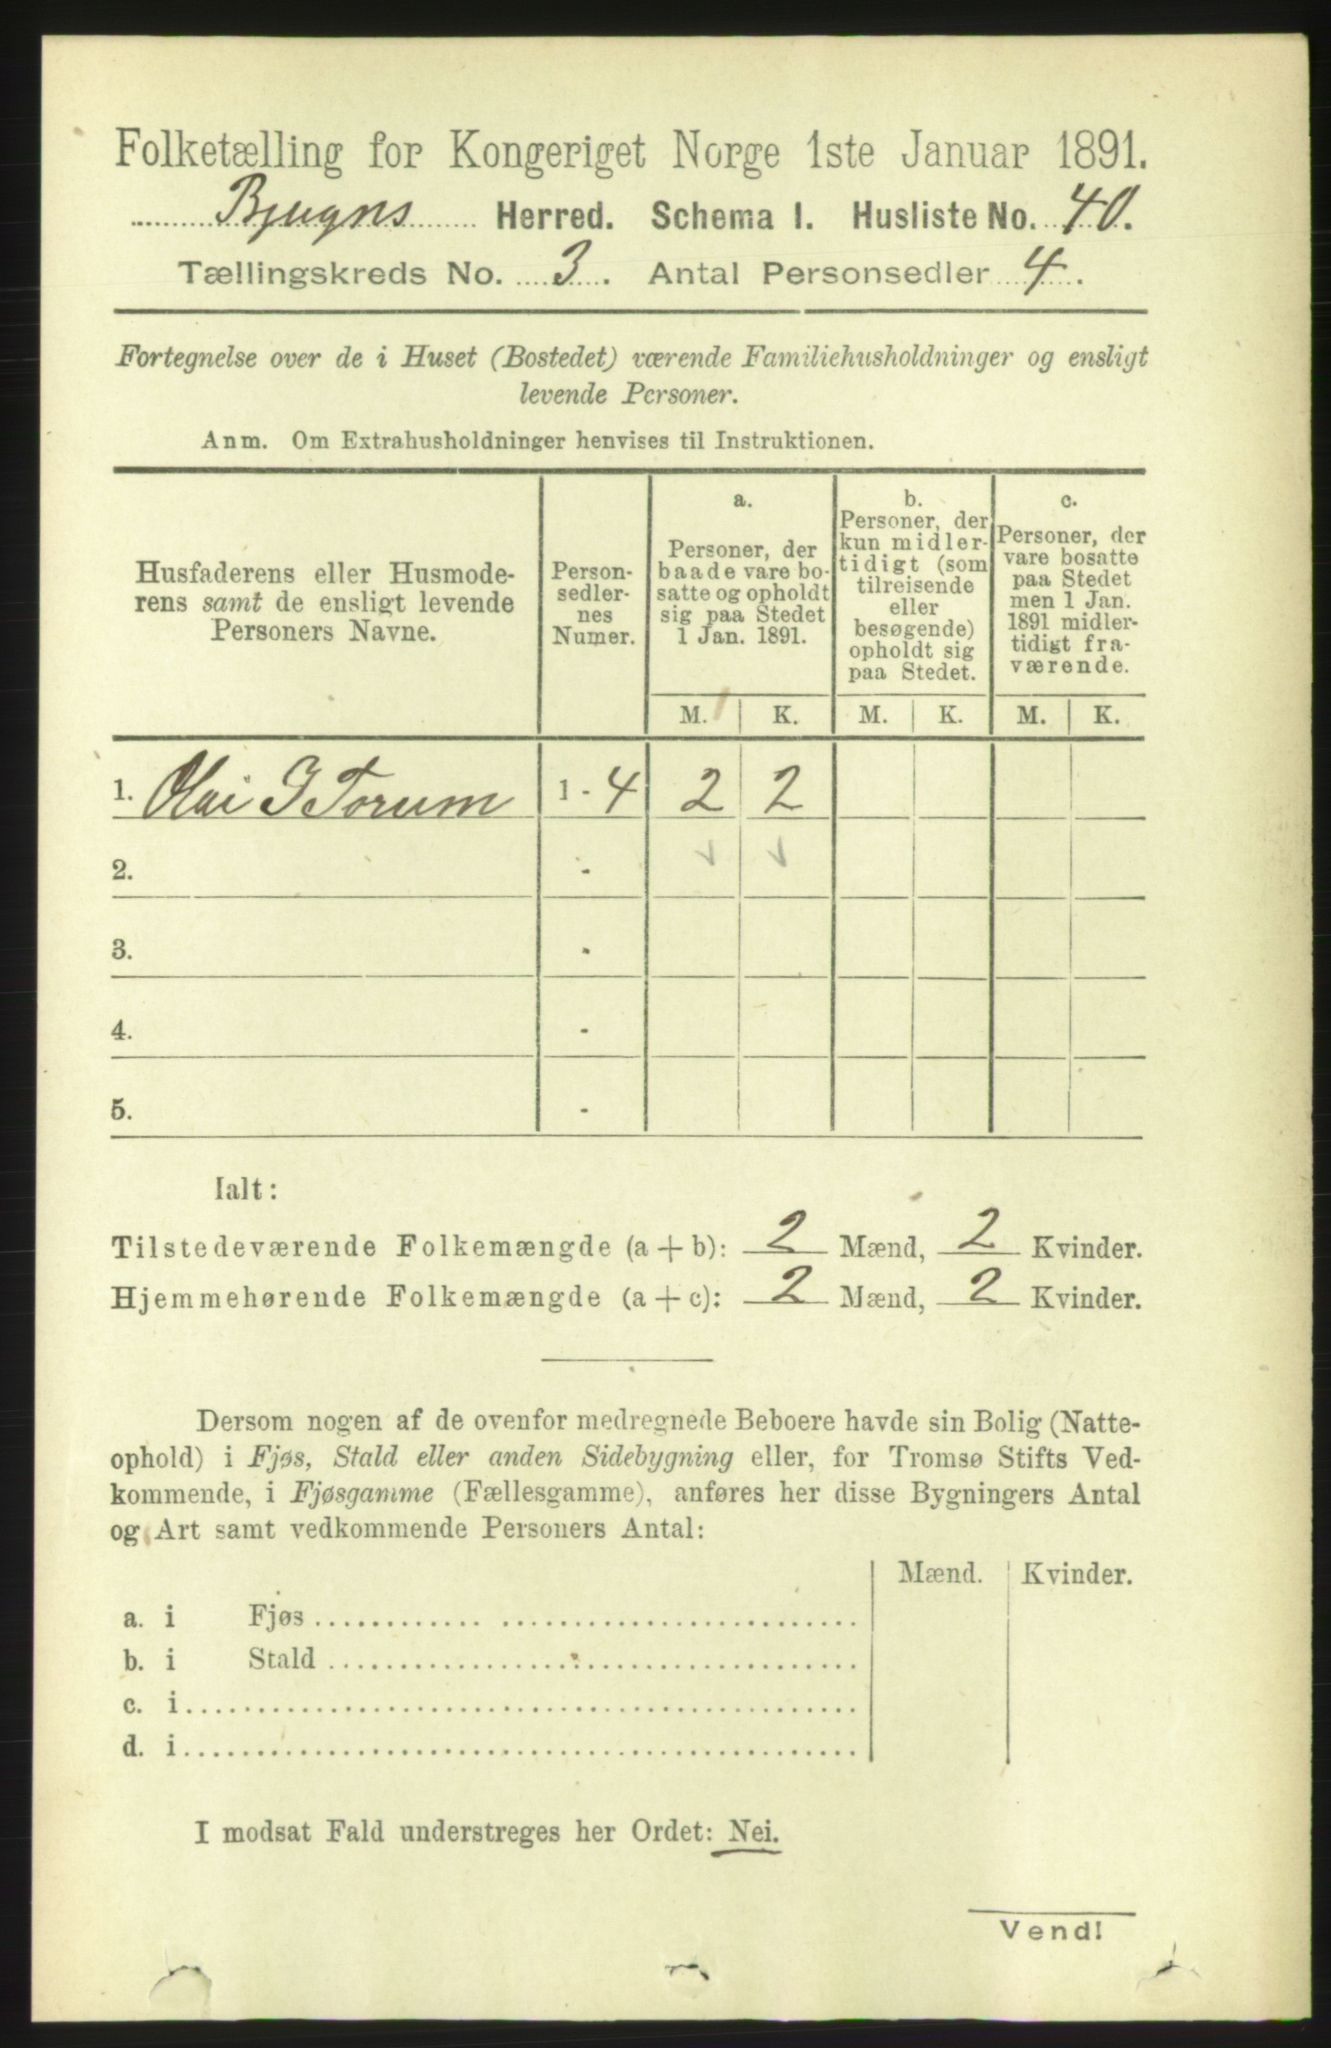 Folketælling for Kongeriget Norge 1ste Januar 1891.
Bjugns Herred. Schema I. Husliste No. 40.
Tællingskreds No. 3. Antal Personsedler 4.
Fortegnelse over de i Huset (Bostedet) værende Familiehusholdninger og ensligt
levende Personer.
Anm. Om Extrahusholdninger henvises til Instruktionen.
Husfaderens eller Husmode-
rens samt de ensligt levende
Personers Navne.
Person-
sedler-
nes
Numer.
a.
Personer, der
baade vare bo-
satte og opholdt
sig paa Stedet
1 Jan. 1891.
b.
Personer, der
kun midler-
tidigt (som
tilreisende
eller
besøgende)
opholdt sig
paa Stedet.
c.
Personer, der
vare bosatte
paa Stedet
men 1 Jan.
1891 midler-
tidigt fra-
værende.
M. K. M. K. M. K.
1. Olai I Torum 1 - 4 2 2
2. -
3. -
4. -
5. -
Ialt:
Tilstedeværende Folkemængde (a + b): 2 Mænd, 2 Kvinder.
Hjemmehørende Folkemængde (a + c): 2 Mænd, 2 Kvinder.
Dersom nogen af de ovenfor medregnede Beboere havde sin Bolig (Natte-
ophold) i Fjøs, Stald eller anden Sidebygning eller, for Tromsø Stifts Ved-
kommende, i Fjøsgamme (Fællesgamme), anføres her disse Bygningers Antal
og Art samt vedkommende Personers Antal:
Mænd. Kvinder.
a. i Fjøs
b. i Stald
c. i
d. i
I modsat Fald understreges her Ordet: Nei.
Vend!